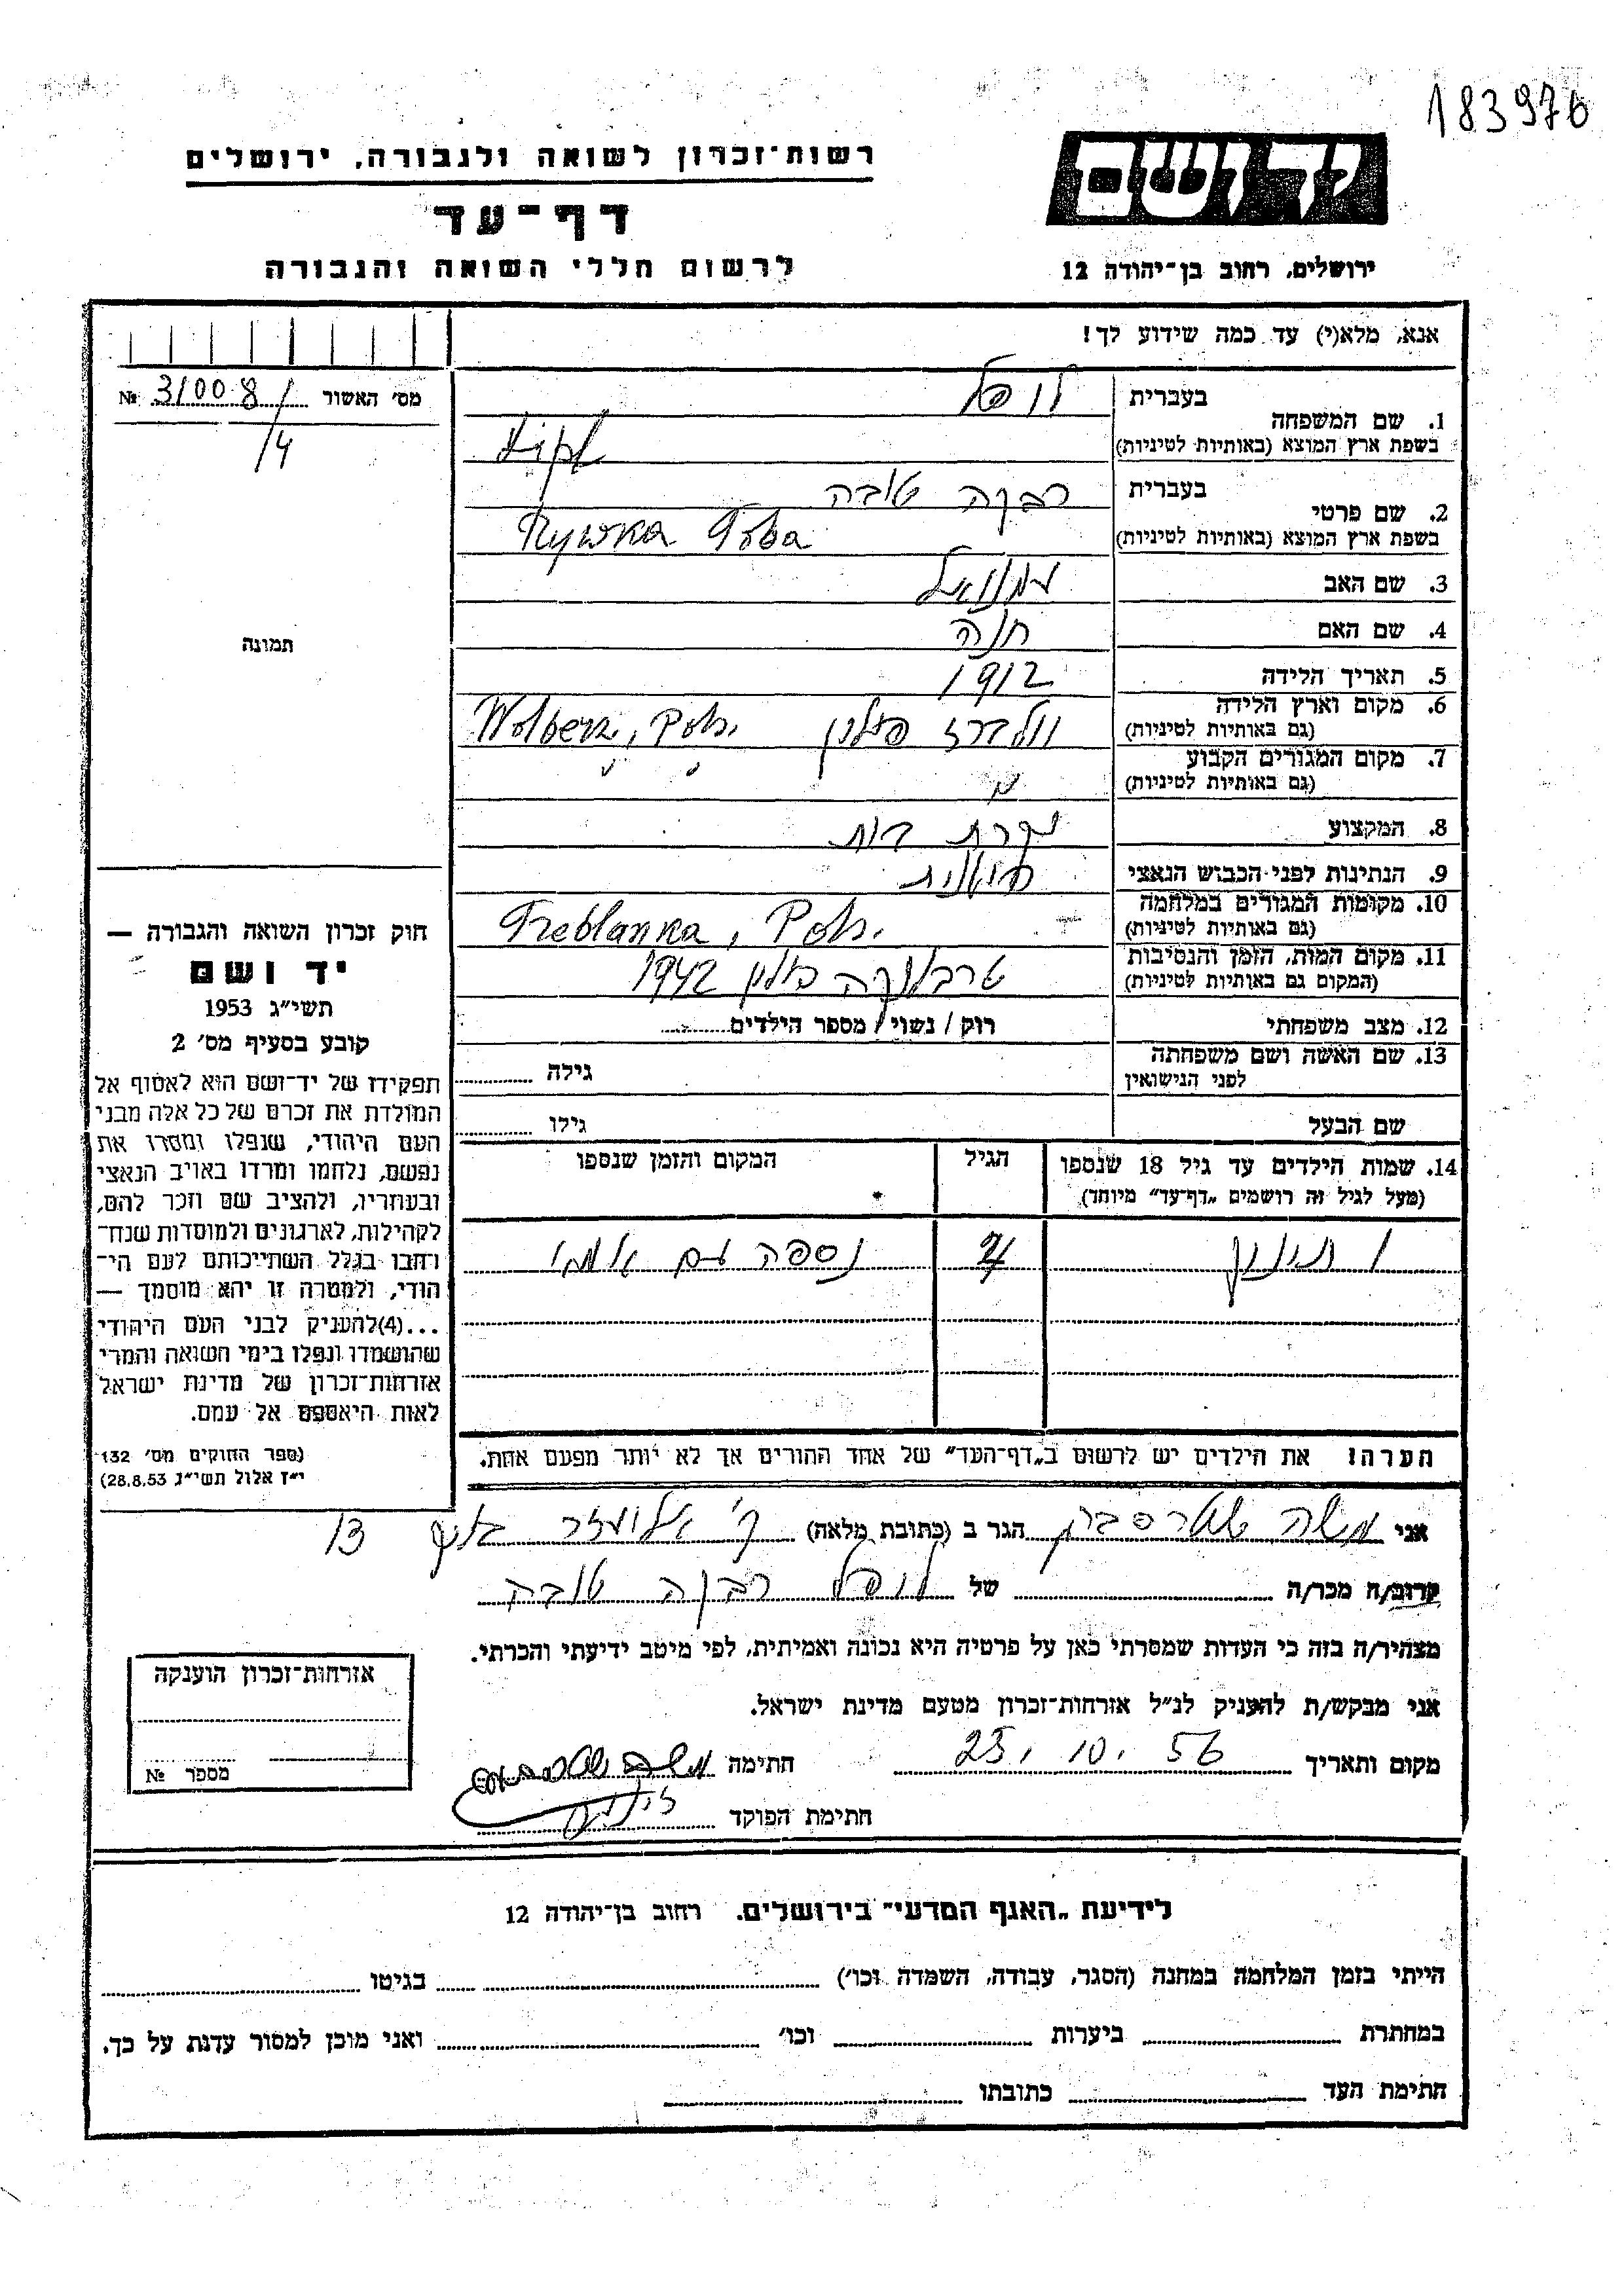 183976
רשות־זכרון לשואה ולגבורה, ירושלים
יד ושם
דף־עד
לרשום חללי השואה והגבורה
ירושלים, רחוב בן־יהודה 12
אנא, מלא(י) עד כמה שידוע לך!
מס' האשור № 31008/
/4
1. שם המשפחה
בעברית
בשפת ארץ המוצא (באותיות לטיניות)
2. שם פרטי
בעברית רבקה טובה
בשפת ארץ המוצא (באותיות לטיניות) Rywka Toba
3. שם האב
4. שם האם חנה
5. תאריך הלידה 1912
6. מקום וארץ הלידה
(גם באותיות לטיניות) וולברז פולין Wolberz, Pol.
7. מקום המגורים הקבוע
(גם באותיות לטיניות)
8. המקצוע עקרת בית
9. הנתינות לפני הכבוש הנאצי פולנית
10. מקומות המגורים במלחמה
(גם באותיות לטיניות) Treblanka, Pol.
11. מקום המות, הזמן והנסיבות
(המקום גם באותיות לטיניות) טרבלנקה פולין 1942
12. מצב משפחתי רוק / נשוי / מספר הילדים
13. שם האשה ושם משפחתה
לפני הנישואין גילה
שם הבעל גילו
14. שמות הילדים עד גיל 18 שנספו
(מעל לגיל זה רושמים „דף־עד" מיוחד)
הגיל
המקום והזמן שנספו
1 תינוק נספה עם אמו
הערה! את הילדים יש לרשום ב„דף־העד" של אחד ההורים אך לא יותר מפעם אחת.
תמונה
חוק זכרון השואה והגבורה —
יד ושם
תשי"ג 1953
קובע בסעיף מס' 2
תפקידו של יד־ושם הוא לאסוף אל
המולדת את זכרם של כל אלה מבני
העם היהודי, שנפלו ומסרו את
נפשם, נלחמו ומרדו באויב הנאצי
ובעוזריו, ולהציב שם וזכר להם,
לקהילות, לארגונים ולמוסדות שנח־
רבו בגלל השתייכותם לעם הי־
הודי, ולמטרה זו יהא מוסמך —
...(4)להעניק לבני העם היהודי
שהושמדו ונפלו בימי השואה והמרי
אזרחות־זכרון של מדינת ישראל
לאות היאספם אל עמם.
(ספר החוקים מס' 132
י"ז אלול תשי"ג 28.8.53)
אני משה הגר ב (כתובת מלאה) 13
קרוב/ה מכר/ה של רבקה טובה
מצהיר/ה בזה כי העדות שמסרתי כאן על פרטיה היא נכונה ואמיתית, לפי מיטב ידיעתי והכרתי.
אני מבקש/ת להעניק לנ"ל אזרחות־זכרון מטעם מדינת ישראל.
מקום ותאריך 25. 10. 56 חתימה
חתימת הפוקד
אזרחות־זכרון הוענקה
מספר №
לידיעת „האגף המדעי" בירושלים. רחוב בן־יהודה 12
הייתי בזמן המלחמה במחנה (הסגר, עבודה, השמדה וכו') בגיטו
במחתרת ביערות וכו' ואני מוכן למסור עדות על כך.
חתימת העד כתובתו